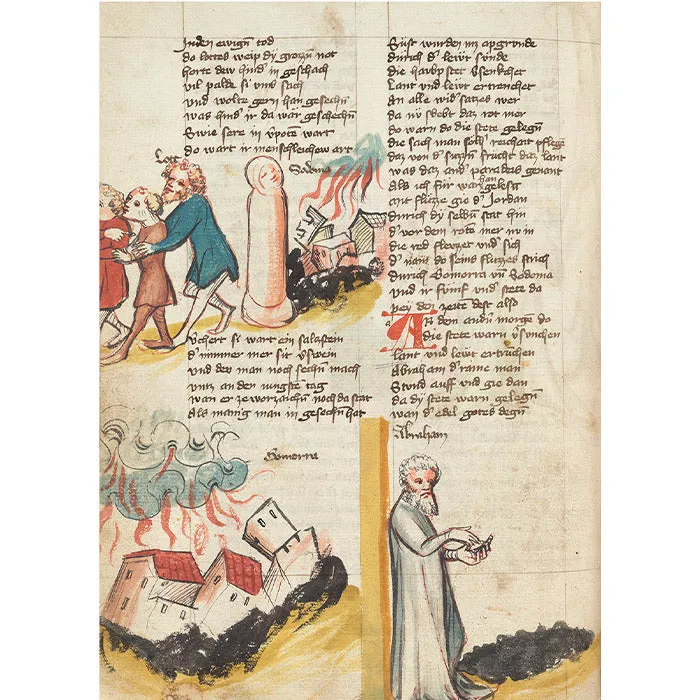 In den ewigñ tod
do lottes weip dy grozñ not
horte dew hind' in geschach
vil palde si vmb sach
vnd wolte gern han gesechñ
was hind' ir da wär geschechñ
Swie sere in v'pote wart
do wart ir menschleichew art
Lott
Sodoma
v'chert si wart ein salzstein
d' nimmer mer sit v'swein
vnd den man noch sechñ mach
vntz an den iungste tag
wan er ze worzaichñ noch da stat
Als manig man in gesechñ hat
Gomorra
Sust wurden im apgrunde
durch d' lewt sunde
die stet
Lant vnd lewt ertrencket
An alle wid' satzes wer
da nv swebt daz rot mer
do warn do die stete gelegñ
die sach man solh' reichait pflegñ
daz von d' suzzñ frucht daz lant
was daz and' paradeis genant
Als ich für war han gelesñ
mit fluzze gie d' Jordan
durich dy selbñ stat hin
d' vor dem roten mer nv in
die red flewzet vnd sich
d' nam do seins fluzzes strich
durich Gomorra vñ Sodoma
vnd ir fumf vnd stete da
pey den zeitē dest also
An dem andñ morge do
die stete warn v'sunchen
lant vnd lewt ertruchen
Abraham d' raine man
Stund auff vnd gie dan
da dy stete warn gelegñ
wan d' edel gotes degñ
Abraham